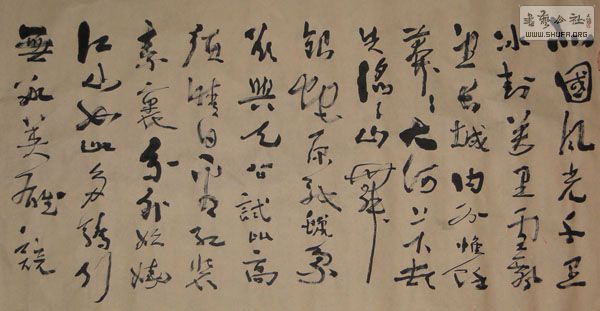 北國风光千里
冰封萬里雪飘
望长城内外惟馀
莽莽大河上下顿
失滔滔山舞
银蛇原驰蠟象
欲與天公試比高
須晴日看红裝
素裹分外妖嬈
江山如此多嬌引
無數英雄競
書藝公社
WWW.SHUFA.ORG